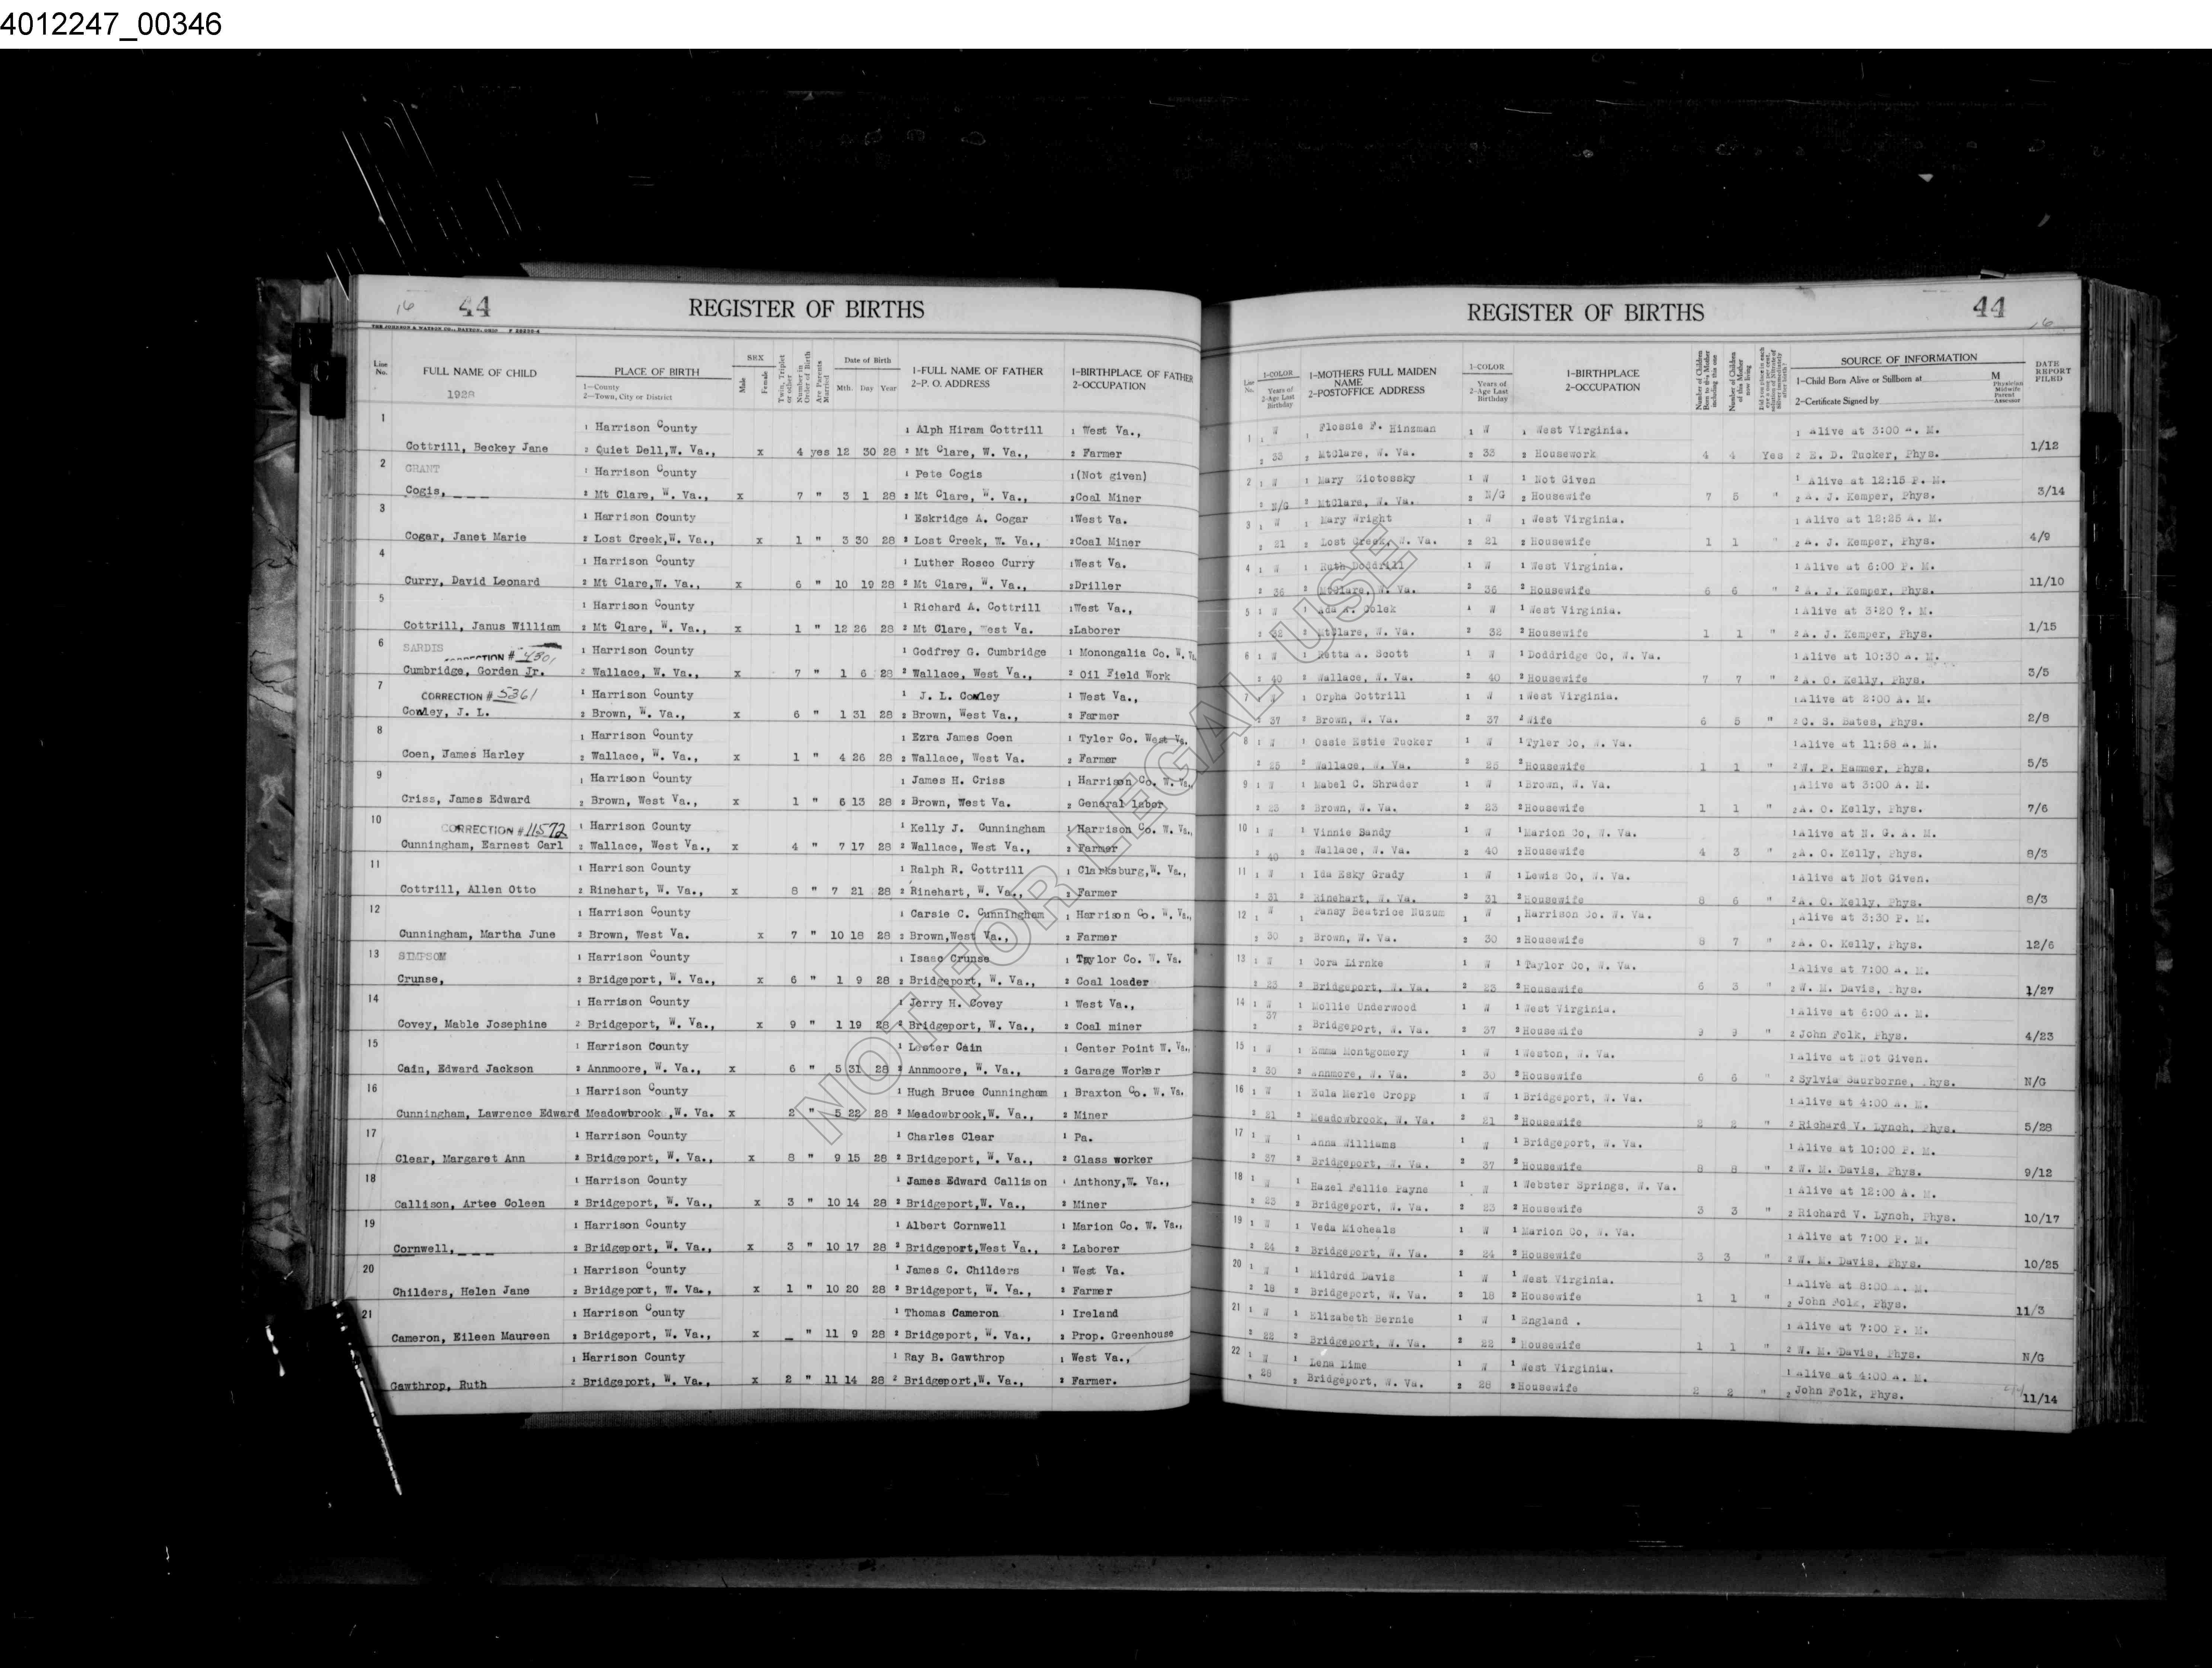 4012247_00346
16 44 REGISTER OF BIRTHS
THE JOHNSON & WATSON CO., DAYTON, OHIO
Line No.
FULL NAME OF CHILD
1928
PLACE OF BIRTH
1—County
2—Town, City or District
SEX
Male
Female
Twin, Triplet or other
Number in Order of Birth
Are Parents Married
Date of Birth
Mth. Day Year
1-FULL NAME OF FATHER
2-P. O. ADDRESS
1-BIRTHPLACE OF FATHER
2-OCCUPATION
1
1 Harrison County 1 Alph Hiram Cottrill 1 West Va.,
Cottrill, Beckey Jane 2 Quiet Dell,W. Va., x 4 yes 12 30 28 2 Mt Clare, W. Va., 2 Farmer
2 GRANT 1 Harrison County 1 Pete Cogis 1(Not given)
Cogis,_ _ _ 2 Mt Clare, W. Va., x 7 " 3 1 28 2 Mt Clare, W. Va., 2Coal Miner
3 1 Harrison County 1 Eskridge A. Cogar 1West Va.
Cogar, Janet Marie 2 Lost Creek,W. Va., x 1 " 3 30 28 2 Lost Creek, W. Va., 2Coal Miner
4 1 Harrison County 1 Luther Rosco Curry 1West Va.
Curry, David Leonard 2 Mt Clare,W. Va., x 6 " 10 19 28 2 Mt Clare, W. Va., 2Driller
5 1 Harrison County 1 Richard A. Cottrill 1West Va.,
Cottrill, Janus William 2 Mt Clare, W. Va., x 1 " 12 26 28 2 Mt Clare, West Va. 2Laborer
6 SARDIS 1 Harrison County 1 Godfrey G. Cumbridge 1 Monongalia Co. W. Va.
CORRECTION # 4301
Cumbridge, Gorden Jr. 2 Wallace, W. Va., x 7 " 1 6 28 2 Wallace, West Va., 2 Oil Field Work
7 CORRECTION # 5361 1 Harrison County 1 J. L. Cowley 1 West Va.,
Cowley, J. L. 2 Brown, W. Va., x 6 " 1 31 28 2 Brown, West Va., 2 Farmer
8 1 Harrison County 1 Ezra James Coen 1 Tyler Co. West Va.
Coen, James Harley 2 Wallace, W. Va., x 1 " 4 26 28 2 Wallace, West Va. 2 Farmer
9 1 Harrison County 1 James H. Criss 1 Harrison Co. W. Va.,
Criss, James Edward 2 Brown, West Va., x 1 " 6 13 28 2 Brown, West Va. 2 General labor
10 CORRECTION # 11572 1 Harrison County 1 Kelly J. Cunningham 1 Harrison Co. W. Va.,
Cunningham, Earnest Carl 2 Wallace, West Va., x 4 " 7 17 28 2 Wallace, West Va., 2 Farmer
11 1 Harrison County 1 Ralph R. Cottrill 1 Clarksburg,W. Va.,
Cottrill, Allen Otto 2 Rinehart, W. Va., x 8 " 7 21 28 2 Rinehart, W. Va., 2 Farmer
12 1 Harrison County 1 Carsie C. Cunningham 1 Harrison Co. W. Va.,
Cunningham, Martha June 2 Brown, West Va. x 7 " 10 18 28 2 Brown,West Va., 2 Farmer
13 SIMPSOM 1 Harrison County 1 Isaac Crunse 1 Taylor Co. W. Va.
Crunse, 2 Bridgeport, W. Va., x 6 " 1 9 28 2 Bridgeport, W. Va., 2 Coal loader
14 1 Harrison County 1 Jerry H. Covey 1 West Va.,
Covey, Mable Josephine 2 Bridgeport, W. Va., x 9 " 1 19 28 2 Bridgeport, W. Va., 2 Coal miner
15 1 Harrison County 1 Lester Cain 1 Center Point W. Va.,
Cain, Edward Jackson 2 Annmoore, W. Va., x 6 " 5 31 28 2 Annmoore, W. Va., 2 Garage Worker
16 1 Harrison County 1 Hugh Bruce Cunningham 1 Braxton Co. W. Va.
Cunningham, Lawrence Edward Meadowbrook ,W. Va. x 2 " 5 22 28 2 Meadowbrook,W. Va., 2 Miner
17 1 Harrison County 1 Charles Clear 1 Pa.
Clear, Margaret Ann 2 Bridgeport, W. Va., x 8 " 9 15 28 2 Bridgeport, W. Va., 2 Glass worker
18 1 Harrison County 1 James Edward Callison 1 Anthony,W. Va.,
Callison, Artee Coleen 2 Bridgeport, W. Va., x 3 " 10 14 28 2 Bridgeport,W. Va., 2 Miner
19 1 Harrison County 1 Albert Cornwell 1 Marion Co. W. Va.,
Cornwell,_ _ _ 2 Bridgeport, W. Va., x 3 " 10 17 28 2 Bridgeport,West Va., 2 Laborer
20 1 Harrison County 1 James C. Childers 1 West Va.
Childers, Helen Jane 2 Bridgeport, W. Va., x 1 " 10 20 28 2 Bridgeport, W. Va., 2 Farmer
21 1 Harrison County 1 Thomas Cameron 1 Ireland
Cameron, Eileen Maureen 2 Bridgeport, W. Va., x _ " 11 9 28 2 Bridgeport, W. Va., 2 Prop. Greenhouse
1 Harrison County 1 Ray B. Gawthrop 1 West Va.,
Gawthrop, Ruth 2 Bridgeport, W. Va., x 2 " 11 14 28 2 Bridgeport,W. Va., 2 Farmer.
REGISTER OF BIRTHS 44
16
Line No.
1-COLOR
Years of
2-Age Last Birthday
1-MOTHERS FULL MAIDEN NAME
2-POSTOFFICE ADDRESS
1-COLOR
Years of
2-Age Last Birthday
1-BIRTHPLACE
2-OCCUPATION
Number of Children Born to this Mother including this one
Number of Children of this Mother now living
Did you place in each eye a one per cent. solution of Nitrate of Silver immediately after birth?
SOURCE OF INFORMATION
1—Child Born Alive or Stillborn at M
2—Certificate Signed by
Physician
Midwife
Parent
Assessor
DATE REPORT FILED
1 1 W 1 Flossie F. Hinzman 1 W 1 West Virginia. 1 Alive at 3:00 A. M.
2 33 2 MtClare, W. Va. 2 33 2 Housework 4 4 Yes 2 E. D. Tucker, Phys. 1/12
2 1 W 1 Mary Ziotossky 1 W 1 Not Given 1 Alive at 12:15 P. M.
2 N/G 2 MtClare, W. Va. 2 N/G 2 Housewife 7 5 " 2 A. J. Kemper, Phys. 3/14
3 1 W 1 Mary Wright 1 W 1 West Virginia. 1 Alive at 12:25 A. M.
2 21 2 Lost Creek, W. Va. 2 21 2 Housewife 1 1 " 2 A. J. Kemper, Phys. 4/9
4 1 W 1 Ruth Doddrill 1 W 1 West Virginia. 1 Alive at 6:00 P. M.
2 36 2 MtClare, W. Va. 2 36 2 Housewife 6 6 " 2 A. J. Kemper, Phys. 11/10
5 1 W 1 Ada Colek 1 W 1 West Virginia. 1 Alive at 3:20 P. M.
2 32 2 MtClare, W. Va. 2 32 2 Housewife 1 1 " 2 A. J. Kemper, Phys. 1/15
6 1 W 1 Retta A. Scott 1 W 1 Doddridge Co, W. Va. 1 Alive at 10:30 A. M.
2 40 2 Wallace, W. Va. 2 40 2 Housewife 7 7 " 2 A. O. Kelly, Phys. 3/5
7 W 1 Orpha Cottrill 1 W 1 West Virginia. 1 Alive at 2:00 A. M.
2 37 2 Brown, W. Va. 2 37 2 Wife 6 5 " 2 C. S. Bates, Phys. 2/8
8 1 W 1 Ossie Estie Tucker 1 W 1 Tyler Co, W. Va. 1 Alive at 11:58 A. M.
2 25 2 Wallace, W. Va. 2 25 2 Housewife 1 1 " 2 W. P. Hammer, Phys. 5/5
9 1 W 1 Mabel C. Shrader 1 W 1 Brown, W. Va. 1 Alive at 3:00 A. M.
2 23 2 Brown, W. Va. 2 23 2 Housewife 1 1 " 2 A. O. Kelly, Phys. 7/6
10 1 W 1 Vinnie Bandy 1 W 1 Marion Co, W. Va. 1 Alive at N. G. A. M.
2 40 2 Wallace, W. Va. 2 40 2 Housewife 4 3 " 2 A. O. Kelly, Phys. 8/3
11 1 W 1 Ida Esky Grady 1 W 1 Lewis Co, W. Va. 1 Alive at Not Given.
2 31 2 Rinehart, W. Va. 2 31 2 Housewife 8 6 " 2 A. O. Kelly, Phys. 8/3
12 1 W 1 Pansy Beatrice Nuzum 1 W 1 Harrison Co. W. Va. 1 Alive at 3:30 P. M.
2 30 2 Brown, W. Va. 2 30 2 Housewife 8 7 " 2 A. O. Kelly, Phys. 12/6
13 1 W 1 Cora Lirnke 1 W 1 Taylor Co, W. Va. 1 Alive at 7:00 A. M.
2 23 2 Bridgeport, W. Va. 2 23 2 Housewife 6 3 " 2 W. M. Davis, Phys. 1/27
14 1 W 1 Mollie Underwood 1 W 1 West Virginia. 1 Alive at 6:00 A. M.
2 37 2 Bridgeport, W. Va. 2 37 2 Housewife 9 9 " 2 John Folk, Phys. 4/23
15 1 W 1 Emma Montgomery 1 W 1 Weston, W. Va. 1 Alive at Not Given.
2 30 2 Annmore, W. Va. 2 30 2 Housewife 6 6 " 2 Sylvia Saurborne, Phys. N/G
16 1 W 1 Eula Merle Cropp 1 W 1 Bridgeport, W. Va. 1 Alive at 4:00 A. M.
2 21 2 Meadowbrook, W. Va. 2 21 2 Housewife 2 2 " 2 Richard V. Lynch, Phys. 5/28
17 1 W 1 Anna Williams 1 W 1 Bridgeport, W. Va. 1 Alive at 10:00 P. M.
2 37 2 Bridgeport, W. Va. 2 37 2 Housewife 8 8 " 2 W. M. Davis, Phys. 9/12
18 1 W 1 Hazel Fellie Payne 1 W 1 Webster Springs, W. Va. 1 Alive at 12:00 A. M.
2 23 2 Bridgeport, W. Va. 2 23 2 Housewife 3 3 " 2 Richard V. Lynch, Phys. 10/17
19 1 W 1 Veda Micheals 1 W 1 Marion Co, W. Va. 1 Alive at 7:00 P. M.
2 24 2 Bridgeport, W. Va. 2 24 2 Housewife 3 3 " 2 W. M. Davis, Phys. 10/25
20 1 W 1 Mildred Davis 1 W 1 West Virginia. 1 Alive at 8:00 A. M.
2 18 2 Bridgeport, W. Va. 2 18 2 Housewife 1 1 " 2 John Folk, Phys. 11/3
21 1 W 1 Elizabeth Bernie 1 W 1 England . 1 Alive at 7:00 P. M.
2 22 2 Bridgeport, W. Va. 2 22 2 Housewife 1 1 " 2 W. M. Davis, Phys. N/G
22 1 W 1 Lena Lime 1 W 1 West Virginia. 1 Alive at 4:00 A. M.
2 28 2 Bridgeport, W. Va. 2 28 2 Housewife 2 2 " 2 John Folk, Phys. 11/14
NOT FOR LEGAL USE